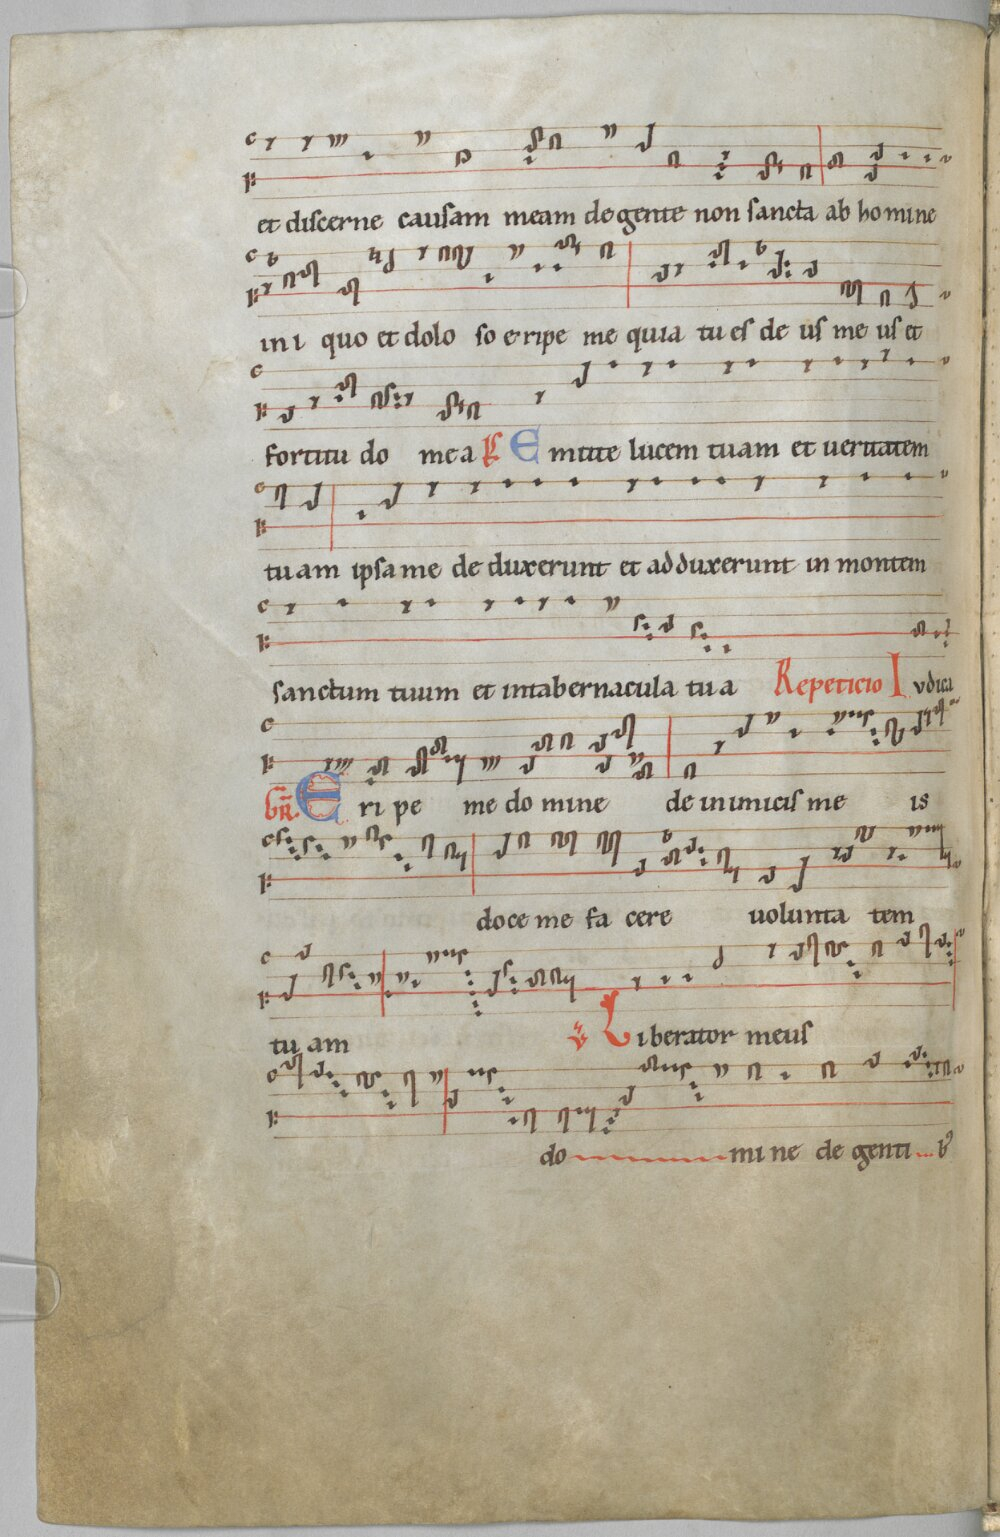 et discerne causam meam de gente non sancta ab homine
ini quo et dolo so eripe me quia tu es de us me us et
fortitu do mea Emitte lucem tuam et ueritatem
tuam ipsa me de duxerunt et adduxerunt in montem
sanctum tuum et intabernacula tua Repeticio Iudica
GR Eripe me domine de inimicis me is
doce me fa cere uolunta tem
tu am Liberator meus
do mine de genti b